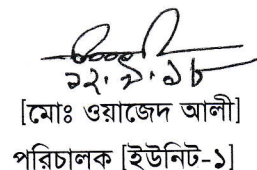 ১২.৯.১৮
[মোঃ ওয়াজেদ আলী]
পরিচালক [ইউনিট-১]